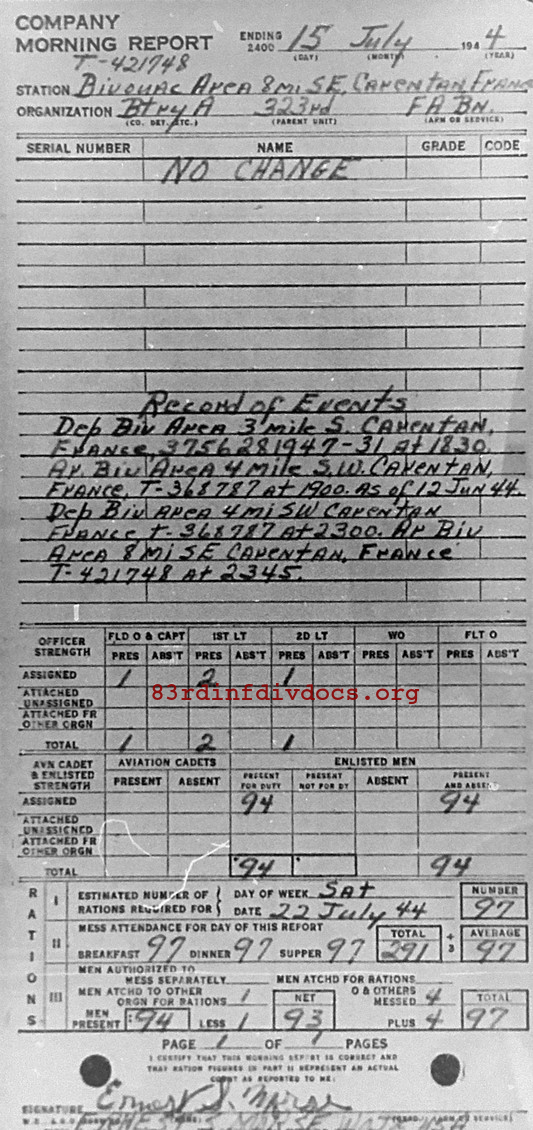 COMPANY
MORNING REPORT
ENDING 2400 15 July 1944
(DAY) (MONTH) (YEAR)
T-421748
STATION Bivouac Area 8 mi SE, Carentan, France
ORGANIZATION Btry A 323rd FA Bn.
(CO. DET. ETC.) (PARENT UNIT) (ARM OR SERVICE)
SERIAL NUMBER NAME GRADE CODE
NO CHANGE
Record of Events
Dep Biv Area 3 mile S. Carentan,
France, 3756281947-31 at 1830.
Ar. Biv Area 4 mile S.W. Carentan,
France, T-368787 at 1900. As of 12 Jun 44.
Dep Biv Area 4 mi SW Carentan
France t-368787 at 2300. Ar Biv
Area 8 mi SE Carentan, France
T-421748 at 2345.
OFFICER STRENGTH FLD O & CAPT 1ST LT 2D LT WO FLT O
PRES ABS'T PRES ABS'T PRES ABS'T PRES ABS'T PRES ABS'T
ASSIGNED 1 2 1
83rdinfdivdocs.org
ATTACHED UNASSIGNED
ATTACHED FR OTHER ORGN
TOTAL 1 2 1
AVN CADET & ENLISTED STRENGTH AVIATION CADETS ENLISTED MEN
PRESENT ABSENT PRESENT FOR DUTY PRESENT NOT FOR DY ABSENT PRESENT AND ABSENT
ASSIGNED 94 94
ATTACHED UNASSIGNED
ATTACHED FR OTHER ORGN
TOTAL 94 94
RATIONS
I ESTIMATED NUMBER OF RATIONS REQUIRED FOR DAY OF WEEK Sat NUMBER
DATE 22 July 44 97
II MESS ATTENDANCE FOR DAY OF THIS REPORT TOTAL ÷ 3 AVERAGE
BREAKFAST 97 DINNER 97 SUPPER 97 291 97
III MEN AUTHORIZED TO MESS SEPARATELY MEN ATCHD FOR RATIONS
MEN ATCHD TO OTHER ORGN FOR RATIONS 1 NET O & OTHERS MESSED 4 TOTAL
MEN PRESENT 94 LESS 1 93 PLUS 4 97
PAGE 1 OF 1 PAGES
I CERTIFY THAT THIS MORNING REPORT IS CORRECT AND
THAT RATION FIGURES IN PART II REPRESENT AN ACTUAL
COUNT AS REPORTED TO ME:
SIGNATURE Ernest S. Morse